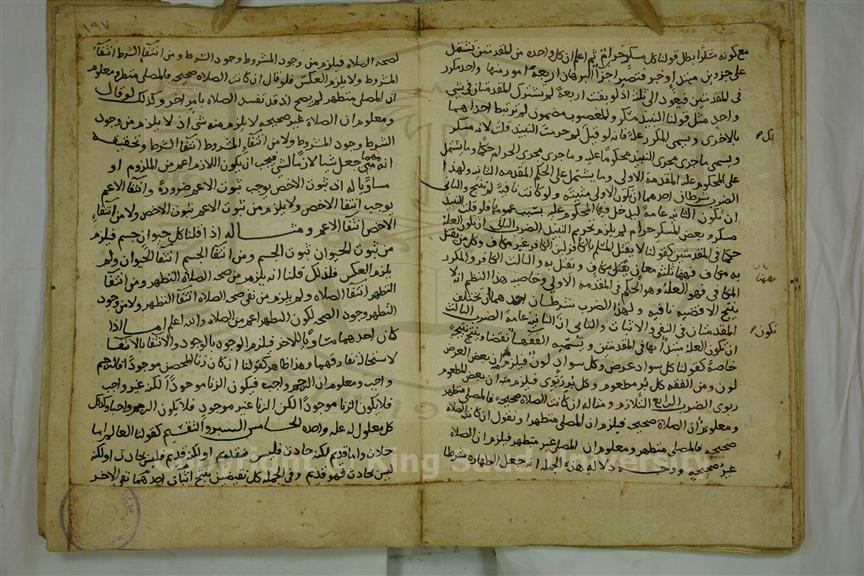 مع كونه مثلوا بطل قولنا كل مسكر حرام ثم اعلم ان كل واحده من المقدمتين تشتمل
على جزءين مبتدا وخبر فتصير اجزا البرهان اربعة امور منها واحد مكرر
في المقدمتين فيعود الى ثلثة اذ لو بقيت اربعة لم تشترك المقدمتان في شي
واحد مثل قولنا النبيذ مسكر والمغصوب مضمون لم ترتبط احداهما
بالاخرى ويسمى المكرر علة فانه لو قيل لم حرمت النبيذ قلت لانه مسكر
ويسمى ما جرى مجرى النبيذ محكوما عليه وما جرى مجرى الحرام حكما وما يشتمل
على المحكوم عليه المقدمة الاولى وما يشتمل على الحكم المقدمة الثانية ولهذا
الضرب شرطان احدهما ان تكون الاولى مثبتة ولو كانت نافية لم تنتج والثاني
ان تكون الثانية عامة ليدخل فيها المحكوم عليه بسبب عمومها فلو قلت النبيذ
مسكر وبعض المسكر حرام لم يلزم تحريم النبيذ الضرب الثاني ان تكون العلة
حكما في المقدمتين كقولنا لا يقتل المسلم بالكافر لان الكافر غير مكاف وكل من يقتل
به مكاف فههنا ثلثه معاني مكاف ويقتل به والثالث الكافر والمكرر
المكافي فهو العلة وهو الحكم في المقدمة الاولى وخاصية هذا النظم انه لا
ينتج الا قضية نافية ولهذا الضرب شرطان احدهما ان تختلف
المقدمتان في النفي والاثبات والثاني ان الثانية عامة الضرب الثالث
ان تكون العلة مبتدا بها في المقدمتين وتسميه الفقها نقضا وينتج نتيجة
خاصة كقولنا كل سواد عرض وكل سواد لون فيلزم ان بعض العرض
لون ومن الفقه كل بر مطعوم وكل بر ربوى فيلزم منه ان بعض المطعوم
ربوى الضرب الرابع التلازم ومثاله ان كانت الصلاة صحيحة فالمصلي متطهر
ومعلوم ان الصلاة صحيحة فيلزم ان يكون المصلي متطهرا ونقول ان كانت الصلاة
صحيحة فالمصلي متطهر ومعلوم ان المصلي غير متطهر فيلزم ان الصلاة
غير صحيحة ووجه دلالة هذه الجملة انه جعل الطهارة شرطا
تكون
١٩٧
لصحة الصلاة فيلزم من وجود المشروط وجود الشرط ومن انتفا الشرط انتفا
المشروط ولا يلزم العكس فلو قال ان كانت الصلاة صحيحة فالمصلي متطهر ومعلوم
ان المصلي متطهر لم يصح اذ قد تفسد الصلاة بامر اخر وكذلك لو قال
ومعلوم ان الصلاة غير صحيحة لا يلزم منه شي اذ لا يلزم من وجود
الشرط وجود المشروط ولا من انتفا المشروط انتفا الشرط وتحقيقه
انه متى جعل شيا لازما لشي فيجب ان يكون اللازم اعم من الملزوم او
مساويا له اذ ثبوت الاخص يوجب ثبوت الاعم ضرورة وانتفا الاعم
يوجب انتفا الاخص ولا يلزم من ثبوت الاعم ثبوت الاخص ولا من انتفا
الاخص انتفا الاعم ومثاله اذ قلنا كل حيوان جسم فيلزم
من ثبوت الحيوان ثبوت الجسم ومن انتفا الجسم انتفا الحيوان ولم
يلزم العكس فلذلك قلنا انه يلزم من صحة الصلاة التطهر ومن انتفا
التطهر انتفا الصلاة ولم يلزم من نفي صحة الصلاة انتفا التطهر ولا من وجود
التطهر وجود الصحة لكون التطهر اعم من الصلاة والله اعلم اما اذا
كان احدهما مساويا للاخر فيلزم الوجود بالوجود والانتفا بالانتفا
لاستحالة تفارقهما وهذا ظاهر كقولنا ان كان زنا المحصن موجودا فالرجم
واجب ومعلوم ان الرجم واجب فيكون الزنا موجودا لكن غير واجب
فلا يكون الزنا موجودا لكن الزنا غير موجود فلا يكون الرجم واجبا وكذلك
كل معلول له علة واحدة الخامس السبر والتقسيم كقولنا العالم اما
حادث واما قديم لكنه حادث فليس بقديم او لكنه قديم فليس بحادث او لكنه
ليس بحادث فهو قديم وفي الجملة كل نقيضين ينتج اثبات احدهما نفي الاخر